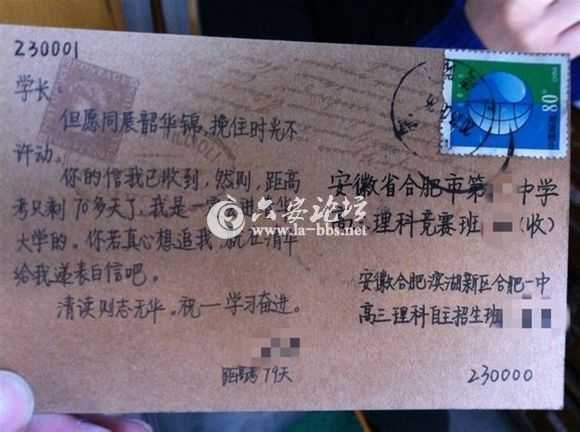 230001
学长
但愿同展韶华锦，挽住时光不
许动。
你的信我已收到，然则，距高
考只剩70多天了，我是一
大学的。你若真心想追我，就在清华
给我递表白信吧。
清读则志无华。祝一学习奋进。
79天
80
安徽省合肥市第 中学
高三理科竞赛班 (收)
安徽合肥滨湖新区合肥一中
高三理科自主招生班
230000
六安论坛
www.la-bbs.net